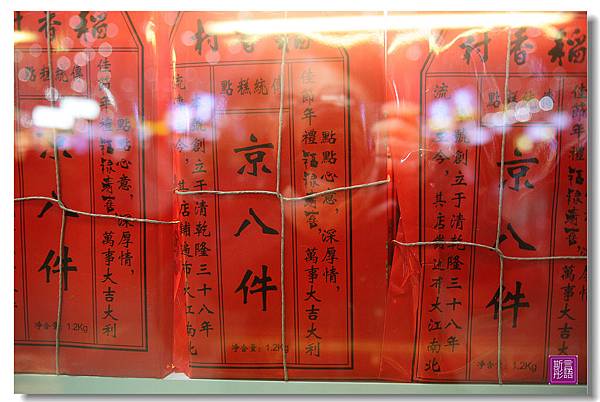 稻香村
傳統糕點
佳節年禮
點點心意,深厚情,
萬事大吉大利
京八件
净含量:1.2Kg
稻香村
傳統糕點
佳節年禮
點點心意,深厚情,
萬事大吉大利
京八件
號創立于清乾隆三十八年
流傳至今,其店鋪遍布大江南北
净含量:1.2Kg
稻香村
傳統糕點
佳節年禮
點點心意,深厚情,
萬事大吉大利
京八件
號創立于清乾隆三十八年
流傳至今,其店鋪遍布大江南北
净含量:1.2Kg